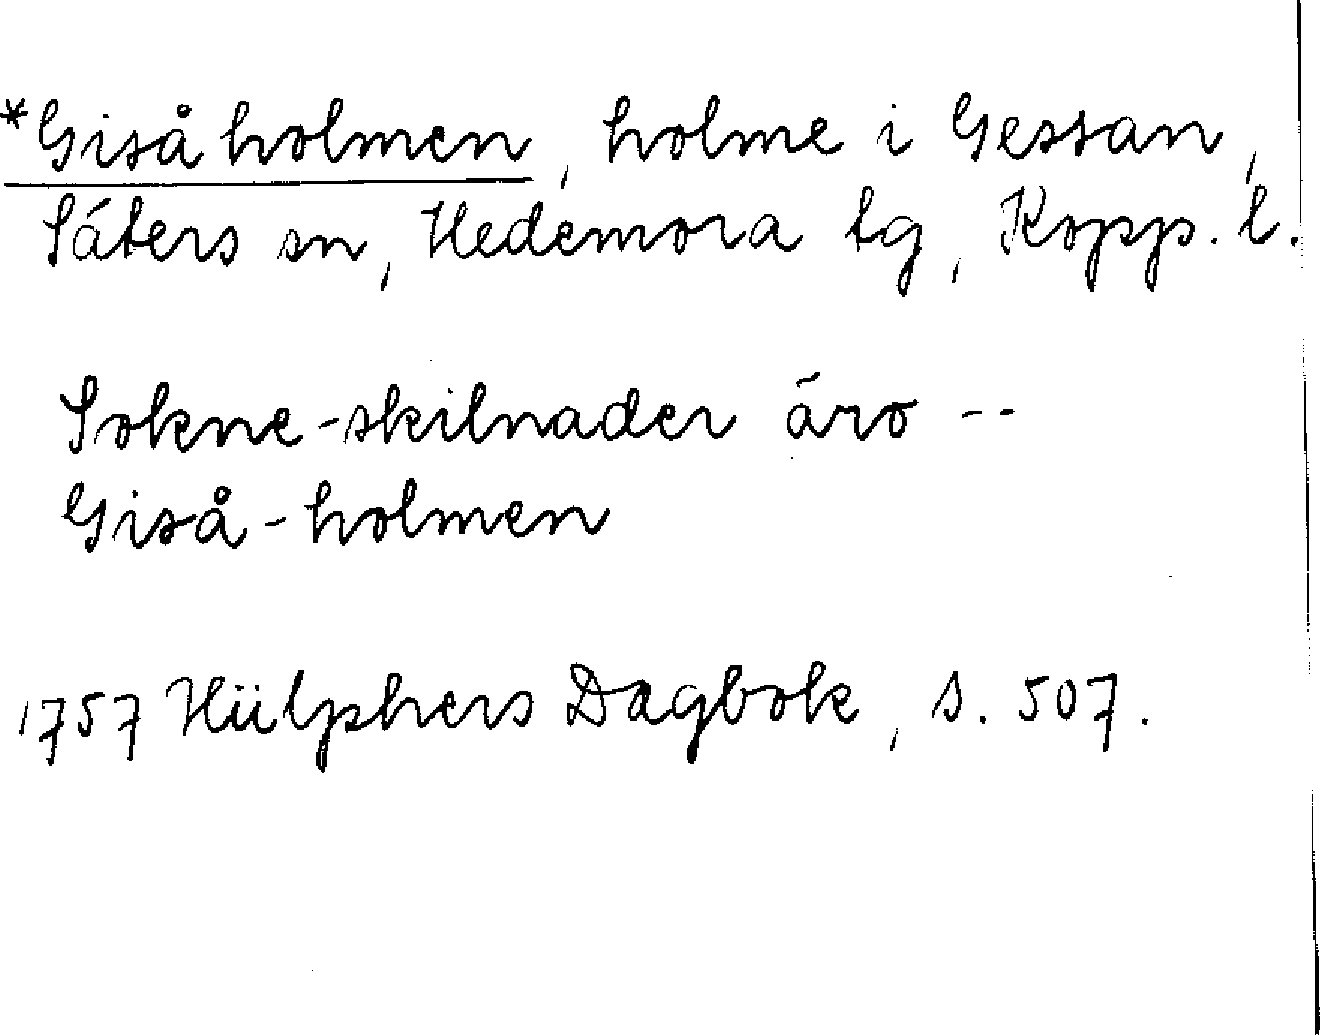 *Gisåholmen, holme i Gessan,
Säters sn, Hedemora tg, Kopp. l.
Sokne-skilnader äro --
Giså-holmen
1757 Hülphers Dagbok, s. 507.